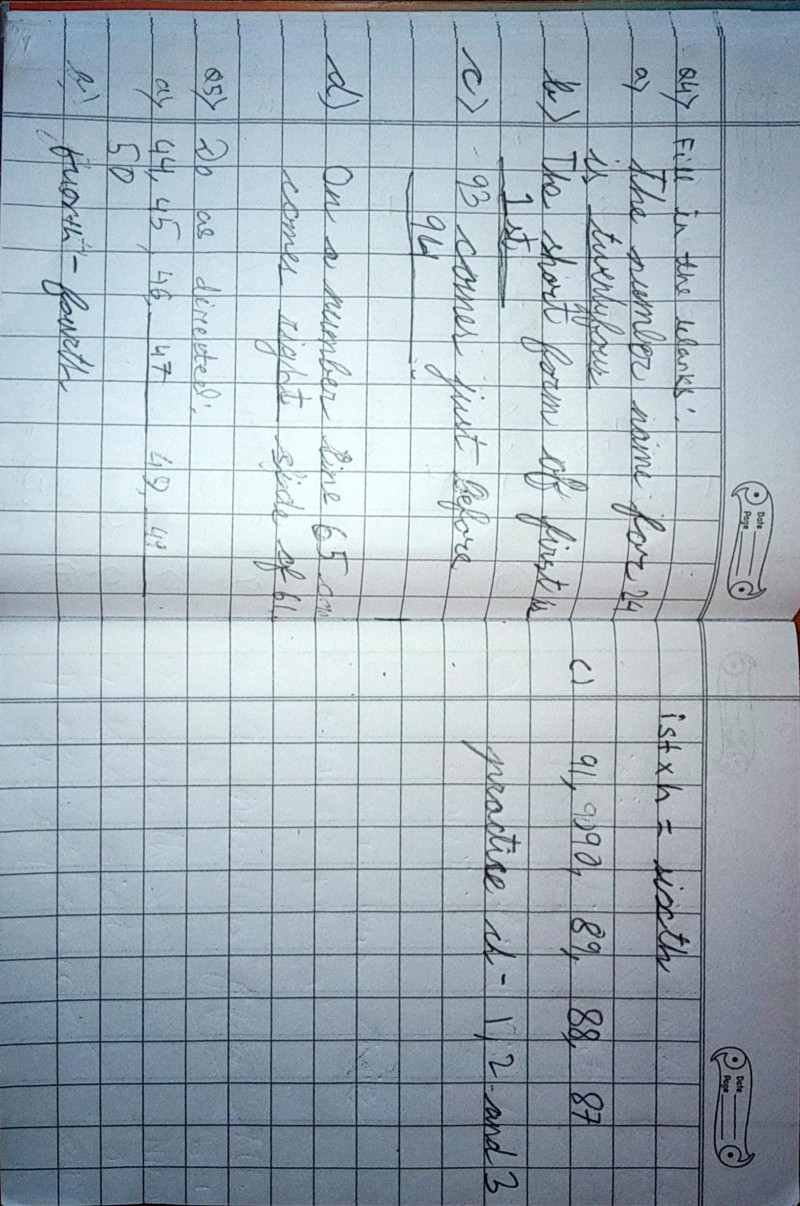 Date
Page
Q4) Fill in the blanks:
a) The number name for 24
is twentyfour
b) The short form of first is
1st
c) 93 comes just before
94
d) On a number line 65
comes right side of 61.
Q5) Do as directed:
a) 44, 45, 46, 47 49, 48
50
b) fuorth - fowrth
Date
Page
istxh = sixth
c) 91, 9090, 89, 88, 87
practise ch - 1, 2 and 3